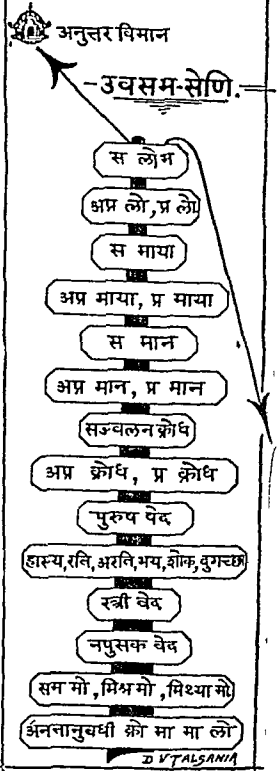 अनुत्तर विमान
उवसम-सेणि.
स लोभ
अप्र लो, प्र लो
स माया
अप्र माया, प्र माया
स मान
अप्र मान, प्र मान
सञ्वलन क्रोध
अप्र क्रोध, प्र क्रोध
पुरुष वेद
हास्य, रति, अरति, भय, शोक, दुगच्छा
स्त्री वेद
नपुसक वेद
सम मो, मिश्र मो, मिथ्या मो
अनन्तानुबधी क्रो मा मा लो
D V TALSANIA